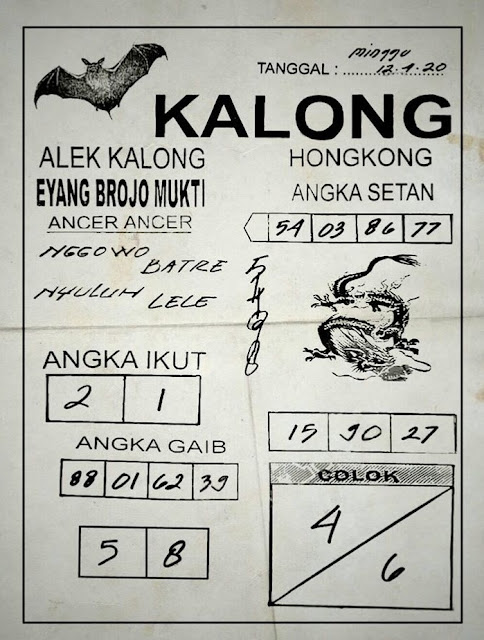 minggu
TANGGAL : 12.4.20
KALONG
ALEK KALONG
HONGKONG
EYANG BROJO MUKTI
ANGKA SETAN
ANCER ANCER
54 03 86 77
NGGOWO
BATRE
NYULUH
LELE
ANGKA IKUT
2 1
15 90 27
ANGKA GAIB
88 01 62 39
COLOK
4
6
5 8